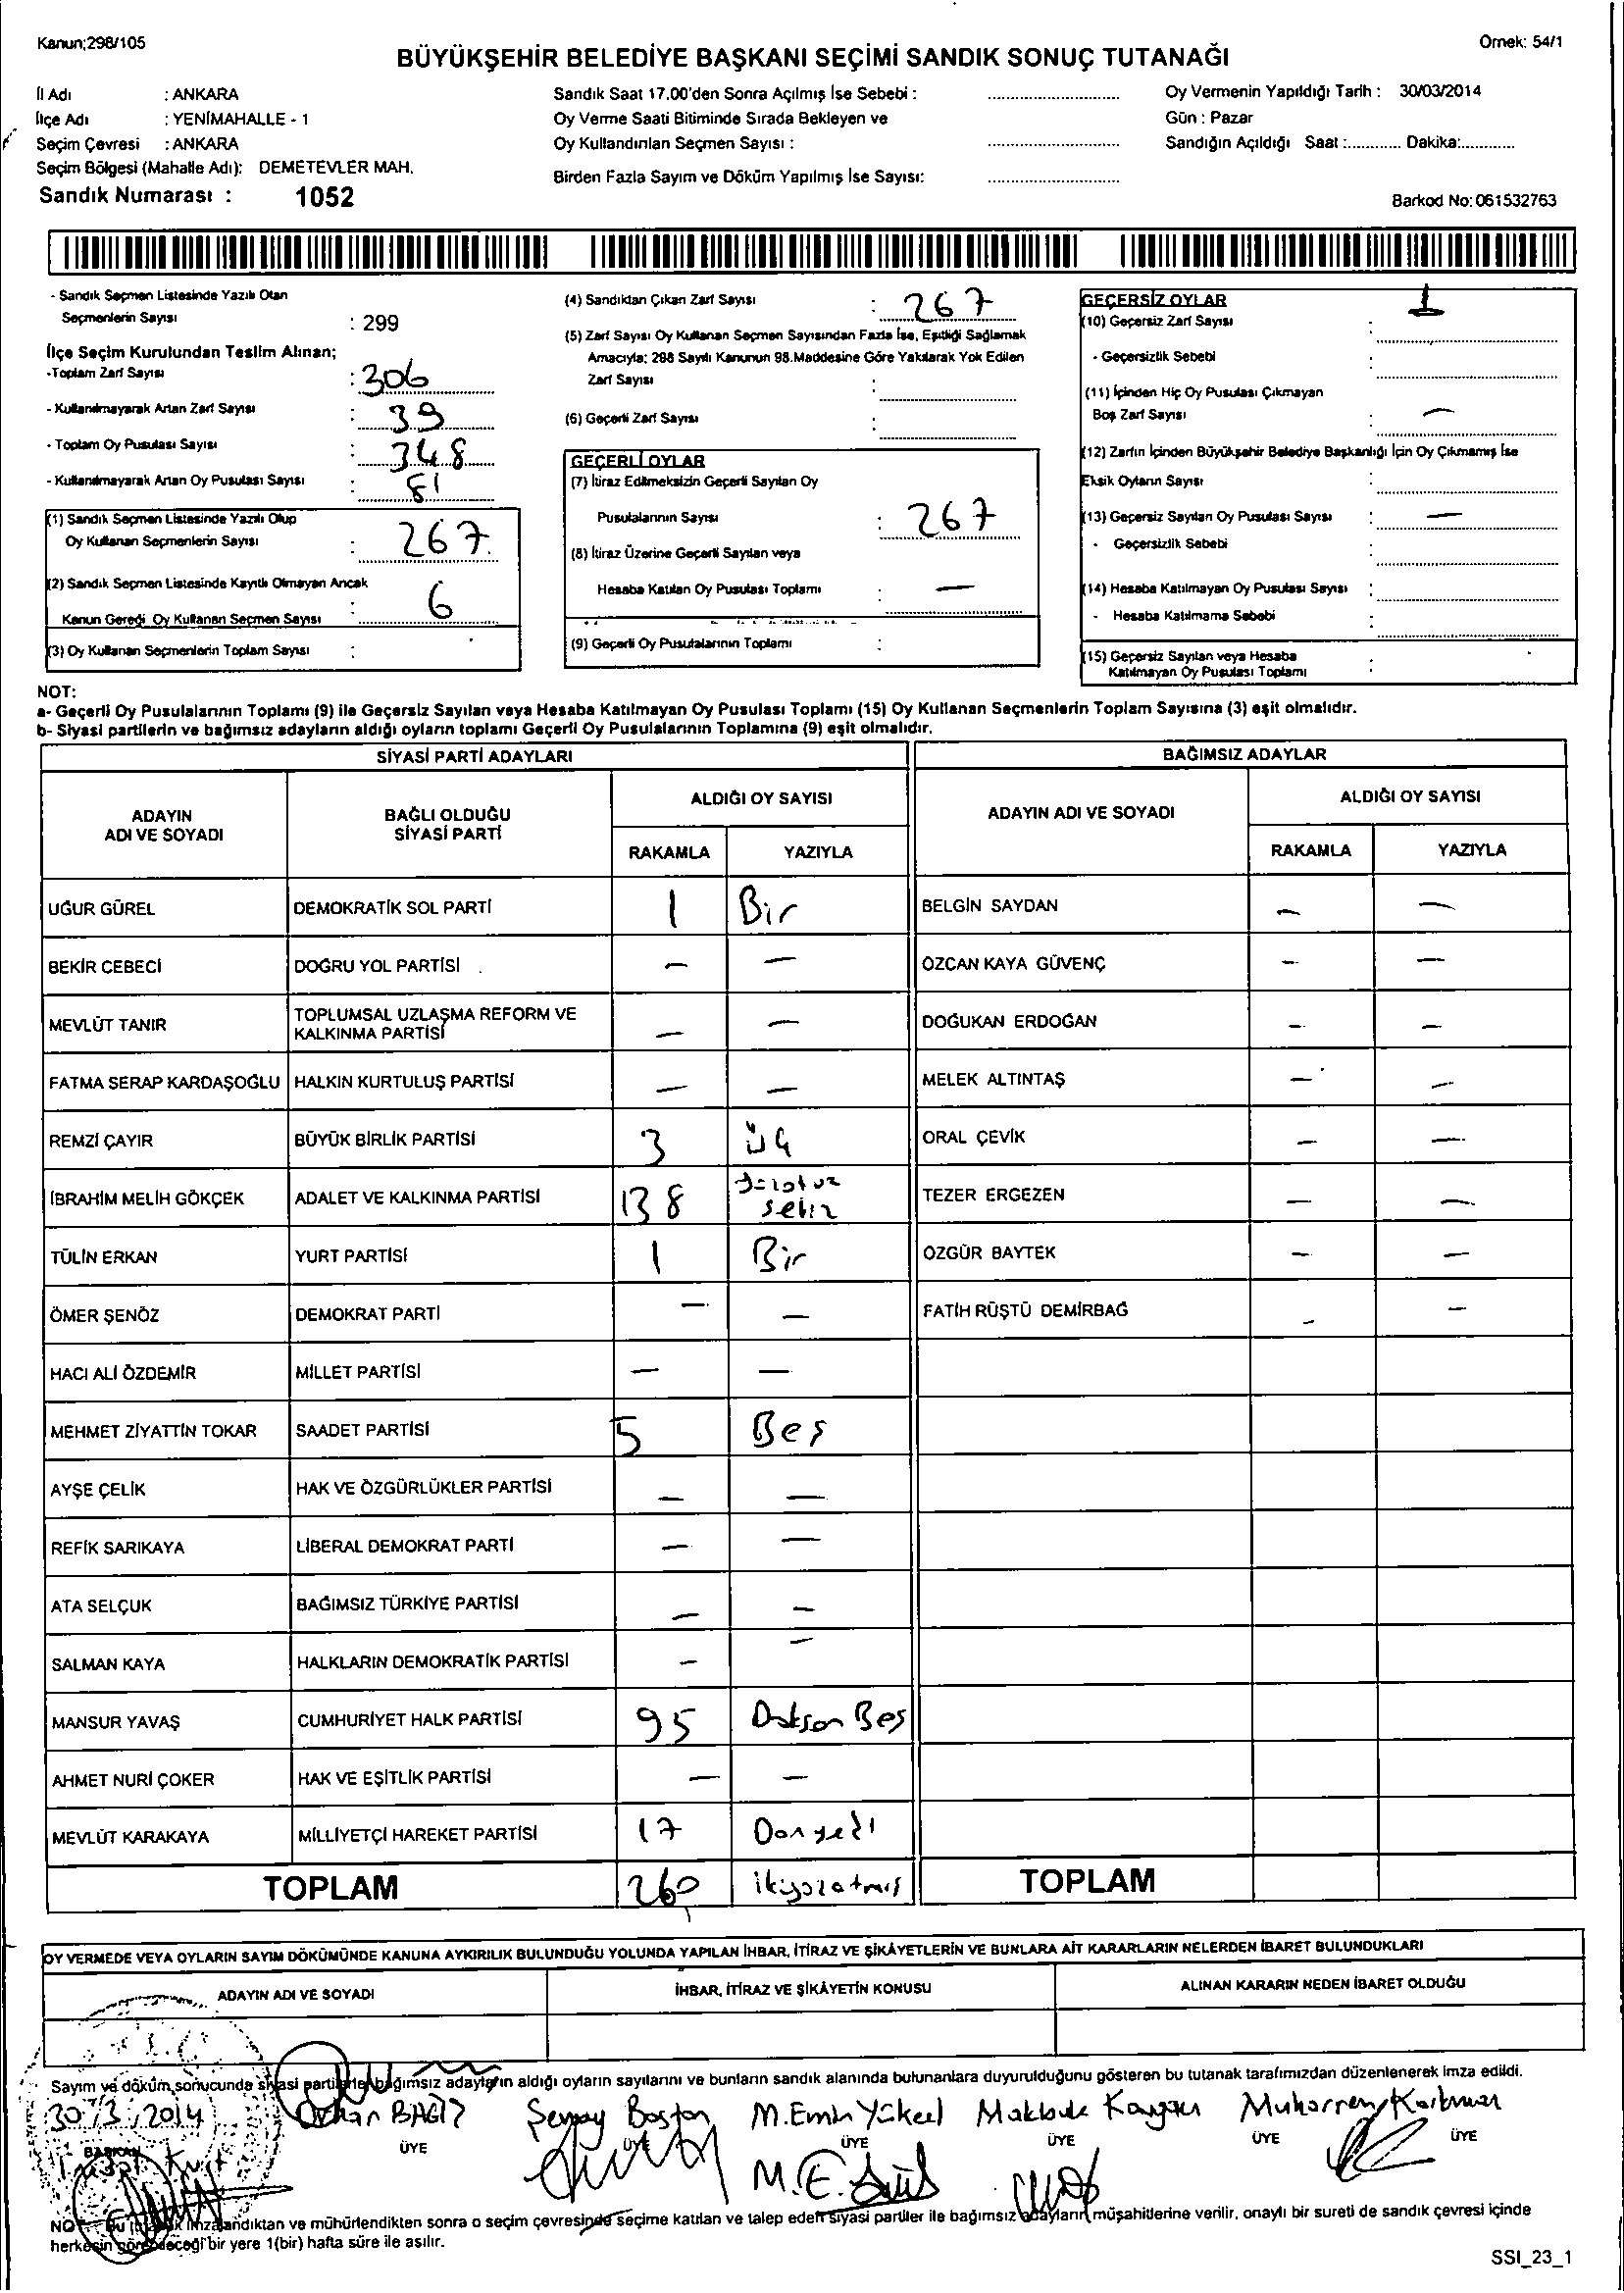 Kanun;298/105
Örnek: 54/1
BÜYÜKŞEHİR BELEDİYE BAŞKANI SEÇİMİ SANDIK SONUÇ TUTANAĞI
İl Adı : ANKARA
İlçe Adı : YENİMAHALLE - 1
Seçim Çevresi : ANKARA
Seçim Bölgesi (Mahalle Adı): DEMETEVLER MAH.
Sandık Numarası : 1052
Sandık Saat 17.00'den Sonra Açılmış İse Sebebi :
Oy Verme Saati Bitiminde Sırada Bekleyen ve
Oy Kullandırılan Seçmen Sayısı :
Birden Fazla Sayım ve Döküm Yapılmış İse Sayısı:
Oy Vermenin Yapıldığı Tarih : 30/03/2014
Gün : Pazar
Sandığın Açıldığı Saat :............ Dakika:............
Barkod No: 061532763
- Sandık Seçmen Listesinde Yazılı Olan
Seçmenlerin Sayısı : 299
İlçe Seçim Kurulundan Teslim Alınan;
-Toplam Zarf Sayısı : 306
- Kullanılmayarak Artan Zarf Sayısı : 39
- Toplam Oy Pusulası Sayısı : 348
- Kullanılmayarak Artan Oy Pusulası Sayısı : 81
(1) Sandık Seçmen Listesinde Yazılı Olup
Oy Kullanan Seçmenlerin Sayısı : 267
(2) Sandık Seçmen Listesinde Kayıtlı Olmayan Ancak
Kanun Gereği Oy Kullanan Seçmen Sayısı : 6
(3) Oy Kullanan Seçmenlerin Toplam Sayısı :
(4) Sandıktan Çıkan Zarf Sayısı : 267
(5) Zarf Sayısı Oy Kullanan Seçmen Sayısından Fazla İse, Eşitliği Sağlamak
Amacıyla; 298 Sayılı Kanunun 98.Maddesine Göre Yakılarak Yok Edilen
Zarf Sayısı :
(6) Geçerli Zarf Sayısı :
GEÇERLİ OYLAR
(7) İtiraz Edilmeksizin Geçerli Sayılan Oy
Pusulalarının Sayısı : 267
(8) İtiraz Üzerine Geçerli Sayılan veya
Hesaba Katılan Oy Pusulası Toplamı : —
(9) Geçerli Oy Pusulalarının Toplamı :
GEÇERSİZ OYLAR
(10) Geçersiz Zarf Sayısı : 1
- Geçersizlik Sebebi :
(11) İçinden Hiç Oy Pusulası Çıkmayan
Boş Zarf Sayısı : —
(12) Zarfın İçinden Büyükşehir Belediye Başkanlığı İçin Oy Çıkmamış İse
Eksik Oyların Sayısı :
(13) Geçersiz Sayılan Oy Pusulası Sayısı : —
- Geçersizlik Sebebi :
(14) Hesaba Katılmayan Oy Pusulası Sayısı :
- Hesaba Katılmama Sebebi :
(15) Geçersiz Sayılan veya Hesaba
Katılmayan Oy Pusulası Toplamı :
NOT:
a- Geçerli Oy Pusulalarının Toplamı (9) ile Geçersiz Sayılan veya Hesaba Katılmayan Oy Pusulası Toplamı (15) Oy Kullanan Seçmenlerin Toplam Sayısına (3) eşit olmalıdır.
b- Siyasi partilerin ve bağımsız adayların aldığı oyların toplamı Geçerli Oy Pusulalarının Toplamına (9) eşit olmalıdır.
SİYASİ PARTİ ADAYLARI
BAĞIMSIZ ADAYLAR
ADAYIN ADI VE SOYADI
BAĞLI OLDUĞU SİYASİ PARTİ
ALDIĞI OY SAYISI
RAKAMLA YAZIYLA
ADAYIN ADI VE SOYADI
ALDIĞI OY SAYISI
RAKAMLA YAZIYLA
UĞUR GÜREL DEMOKRATİK SOL PARTİ 1 Bir BELGİN SAYDAN — —
BEKİR CEBECİ DOĞRU YOL PARTİSİ — — ÖZCAN KAYA GÜVENÇ — —
MEVLÜT TANIR TOPLUMSAL UZLAŞMA REFORM VE KALKINMA PARTİSİ — — DOĞUKAN ERDOĞAN — —
FATMA SERAP KARDAŞOĞLU HALKIN KURTULUŞ PARTİSİ — — MELEK ALTINTAŞ — —
REMZİ ÇAYIR BÜYÜK BİRLİK PARTİSİ 3 üç ORAL ÇEVİK — —
İBRAHİM MELİH GÖKÇEK ADALET VE KALKINMA PARTİSİ 138 yüzotuz sekiz TEZER ERGEZEN — —
TÜLİN ERKAN YURT PARTİSİ 1 Bir ÖZGÜR BAYTEK — —
ÖMER ŞENÖZ DEMOKRAT PARTİ — — FATİH RÜŞTÜ DEMİRBAĞ — —
HACI ALİ ÖZDEMİR MİLLET PARTİSİ — —
MEHMET ZİYATTİN TOKAR SAADET PARTİSİ 5 Beş
AYŞE ÇELİK HAK VE ÖZGÜRLÜKLER PARTİSİ — —
REFİK SARIKAYA LİBERAL DEMOKRAT PARTİ — —
ATA SELÇUK BAĞIMSIZ TÜRKİYE PARTİSİ — —
SALMAN KAYA HALKLARIN DEMOKRATİK PARTİSİ — —
MANSUR YAVAŞ CUMHURİYET HALK PARTİSİ 95 Doksan Beş
AHMET NURİ ÇOKER HAK VE EŞİTLİK PARTİSİ — —
MEVLÜT KARAKAYA MİLLİYETÇİ HAREKET PARTİSİ 17 Onyedi
TOPLAM 260 ikiyüzatmış TOPLAM
OY VERMEDE VEYA OYLARIN SAYIM DÖKÜMÜNDE KANUNA AYKIRILIK BULUNDUĞU YOLUNDA YAPILAN İHBAR, İTİRAZ VE ŞİKÂYETLERİN VE BUNLARA AİT KARARLARIN NELERDEN İBARET BULUNDUKLARI
ADAYIN ADI VE SOYADI İHBAR, İTİRAZ VE ŞİKÂYETİN KONUSU ALINAN KARARIN NEDEN İBARET OLDUĞU
Sayım ve döküm sonucunda siyasi partilerle bağımsız adayların aldığı oyların sayılarını ve bunların sandık alanında bulunanlara duyurulduğunu gösteren bu tutanak tarafımızdan düzenlenerek imza edildi.
30/3/2014 Orhan BAĞIZ Şenay Bostan M.Emin Yüksel Makbule Muharrem
BAŞKAN ÜYE ÜYE ÜYE ÜYE ÜYE ÜYE
NOT: Bu tutanak imzalandıktan ve mühürlendikten sonra o seçim çevresinde seçime katılan ve talep eden siyasi partiler ile bağımsız adayların müşahitlerine verilir, onaylı bir sureti de sandık çevresi içinde
herkesin görebileceği bir yere 1(bir) hafta süre ile asılır.
SSI_23_1